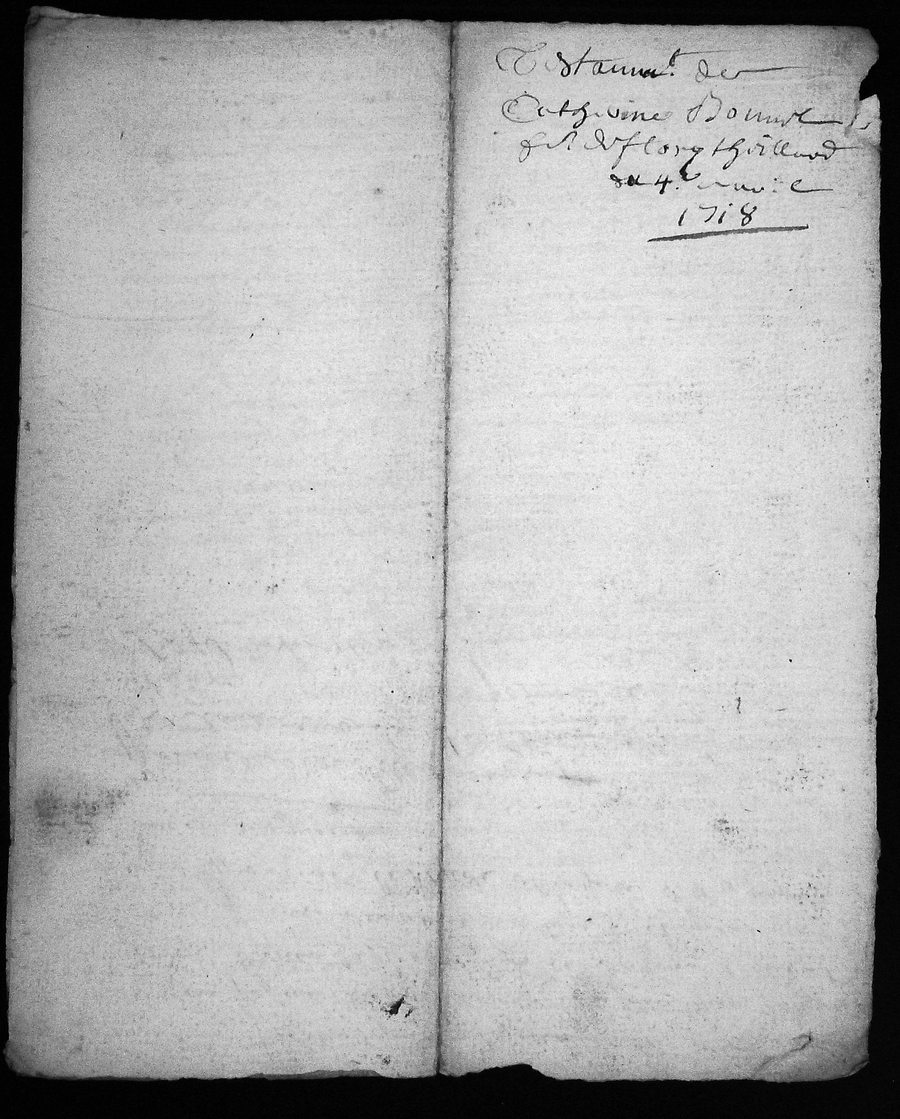 Testam.t de
Catherine Bonnel
f.e de flory thoillard
du 4.e avril
1718